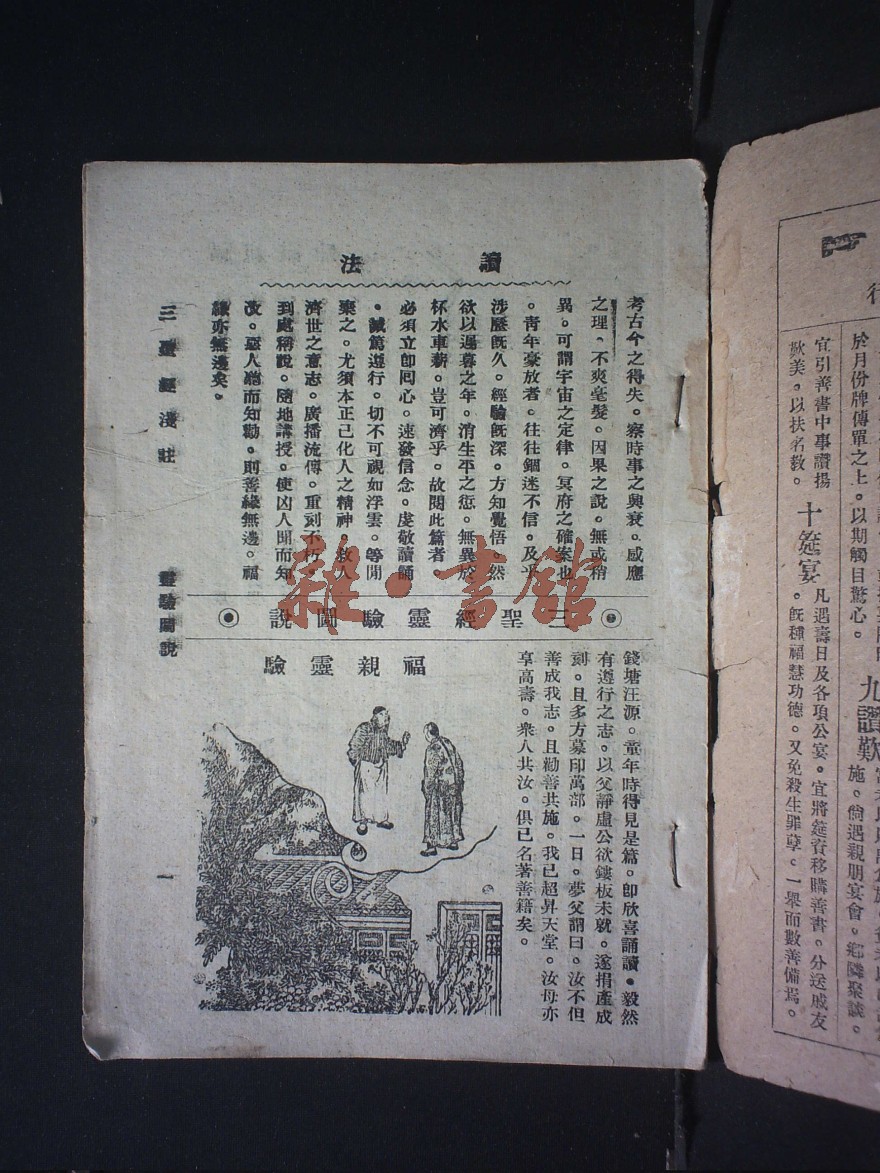 讀法
考古今之得失。察時事之興衰。感應
之理。不爽毫髮。因果之說。無或稍
異。可謂宇宙之定律。冥府之確案也
。青年豪放者。往往錮迷不信。及乎
涉歷既久。經驗既深。方知覺悟。然
欲以遲暮之年。消生平之愆。無異於
杯水車薪。豈可濟乎。故閱此篇者。
必須立卽囘心。速發信念。虔敬讀誦
。誠篤遵行。切不可視如浮雲。等閒
棄之。尤須本正己化人之精神。救人
濟世之意志。廣播流傳。重刻不朽。
到處稱說。隨地講授。使凶人聞而知
改。惡人繙而知勸。則善緣無邊。福
緣亦無邊矣。
三聖經靈驗圖說
福親靈驗
錢塘汪源。童年時得見是篇。卽欣喜誦讀。毅然
有遵行之志。以父靜虛公欲鏤板未就。遂捐產成
刻。且多方募印萬部。一日。夢父謂曰。汝不但
善成我志。且勸善共施。我已超昇天堂。汝母亦
享高壽。衆人共汝。俱已名著善籍矣。
三聖經淺註 靈驗圖說 一
雜·書館
行
於月份牌傳單之上。以期觸目驚心。
九讚歎
施。倘遇親朋宴會。鄉隣聚談。
宜引善書中事讚揚
歎美。以扶名教。
十筵宴
凡遇壽日及各項公宴。宜將筵資移購善書。分送戚友
。旣種福慧功德。又免殺生罪孽。一舉而數善備焉。